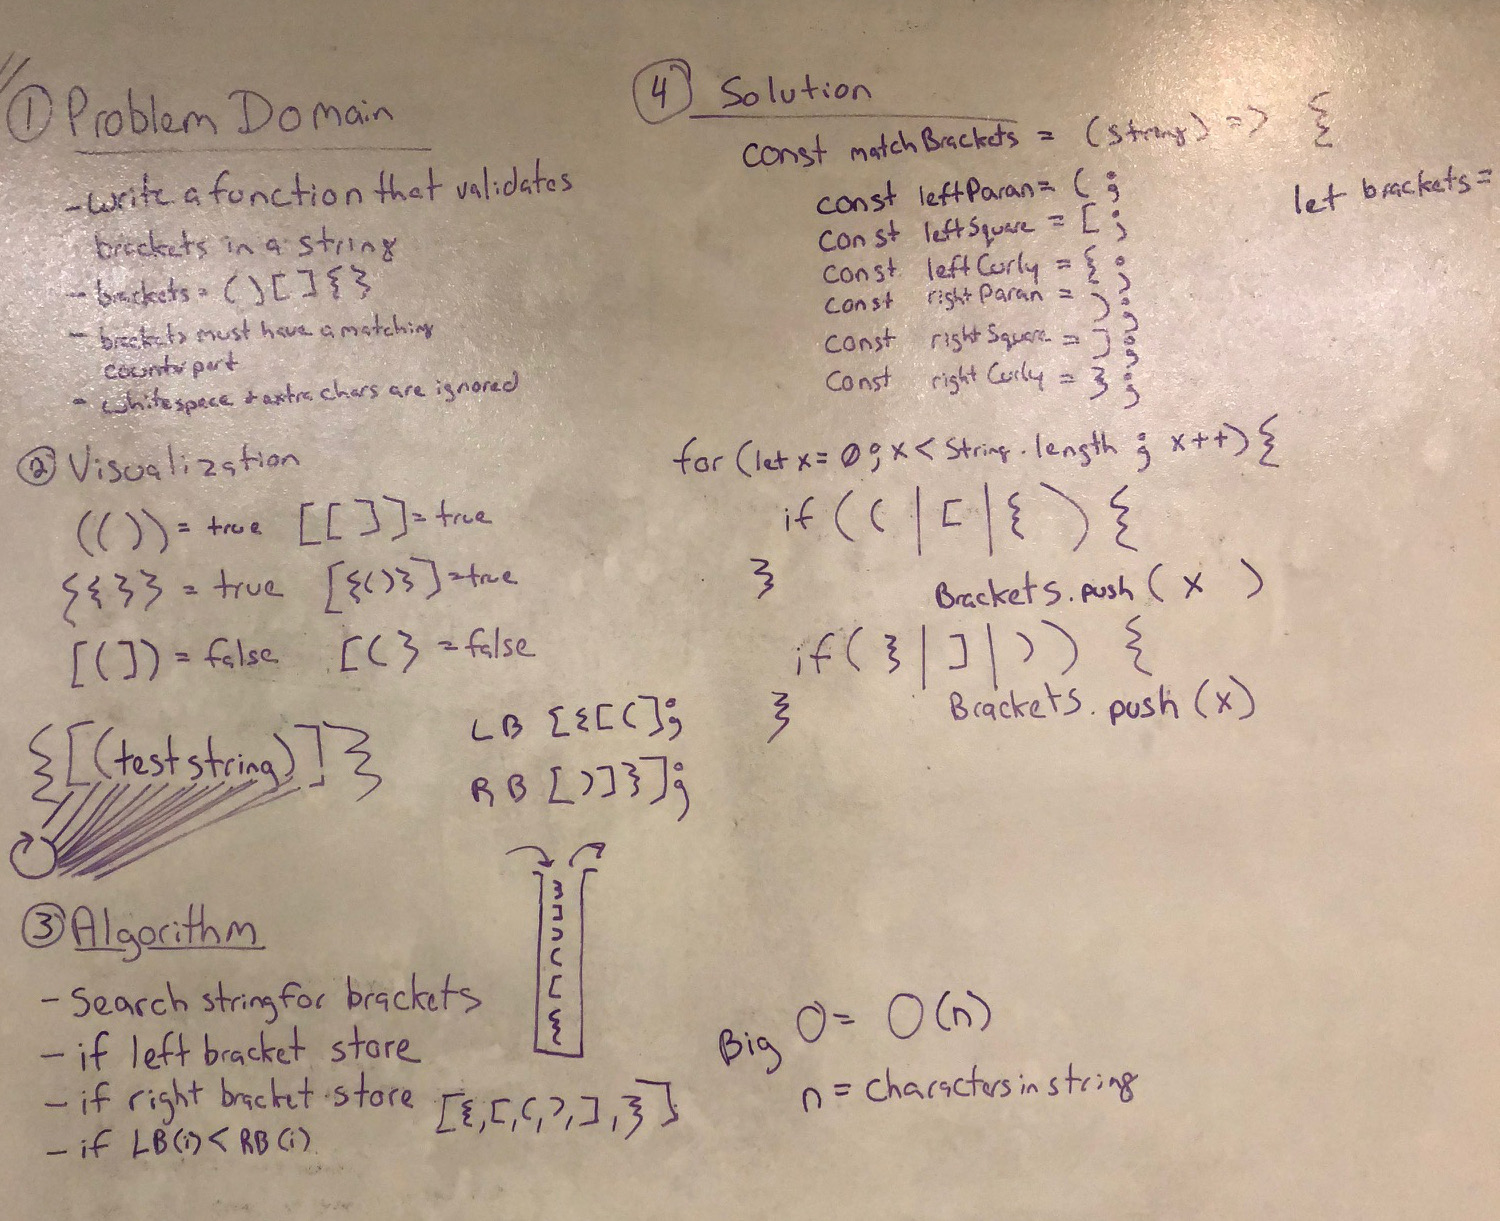 ① Problem Domain
- write a function that validates
brackets in a string
- brackets = ( ) [ ] { }
- brackets must have a matching
counterpart
- whitespace + extra chars are ignored
② Visualization
(( )) = true [[ ]] = true
{{ }} = true [{()}] = true
[(]) = false [(} = false
{[(test string)]}
LB [{[(];
RB [)]}];
}
]
)
(
[
{
③ Algorithm
- Search string for brackets
- if left bracket store
- if right bracket store [{,[,(,),],}]
- if LB(i) < RB(i)
④ Solution
const matchBrackets = (string) => {
let brackets =
const leftParan = (;
const leftSquare = [;
const leftCurly = {;
const rightParan = );
const rightSquare = ];
const rightCurly = };
for (let x = 0; x < String.length; x++) {
if ( ( | [ | { ) {
Brackets.push( x )
}
if ( } | ] | ) ) {
Brackets.push(x)
}
Big O = O(n)
n = characters in string